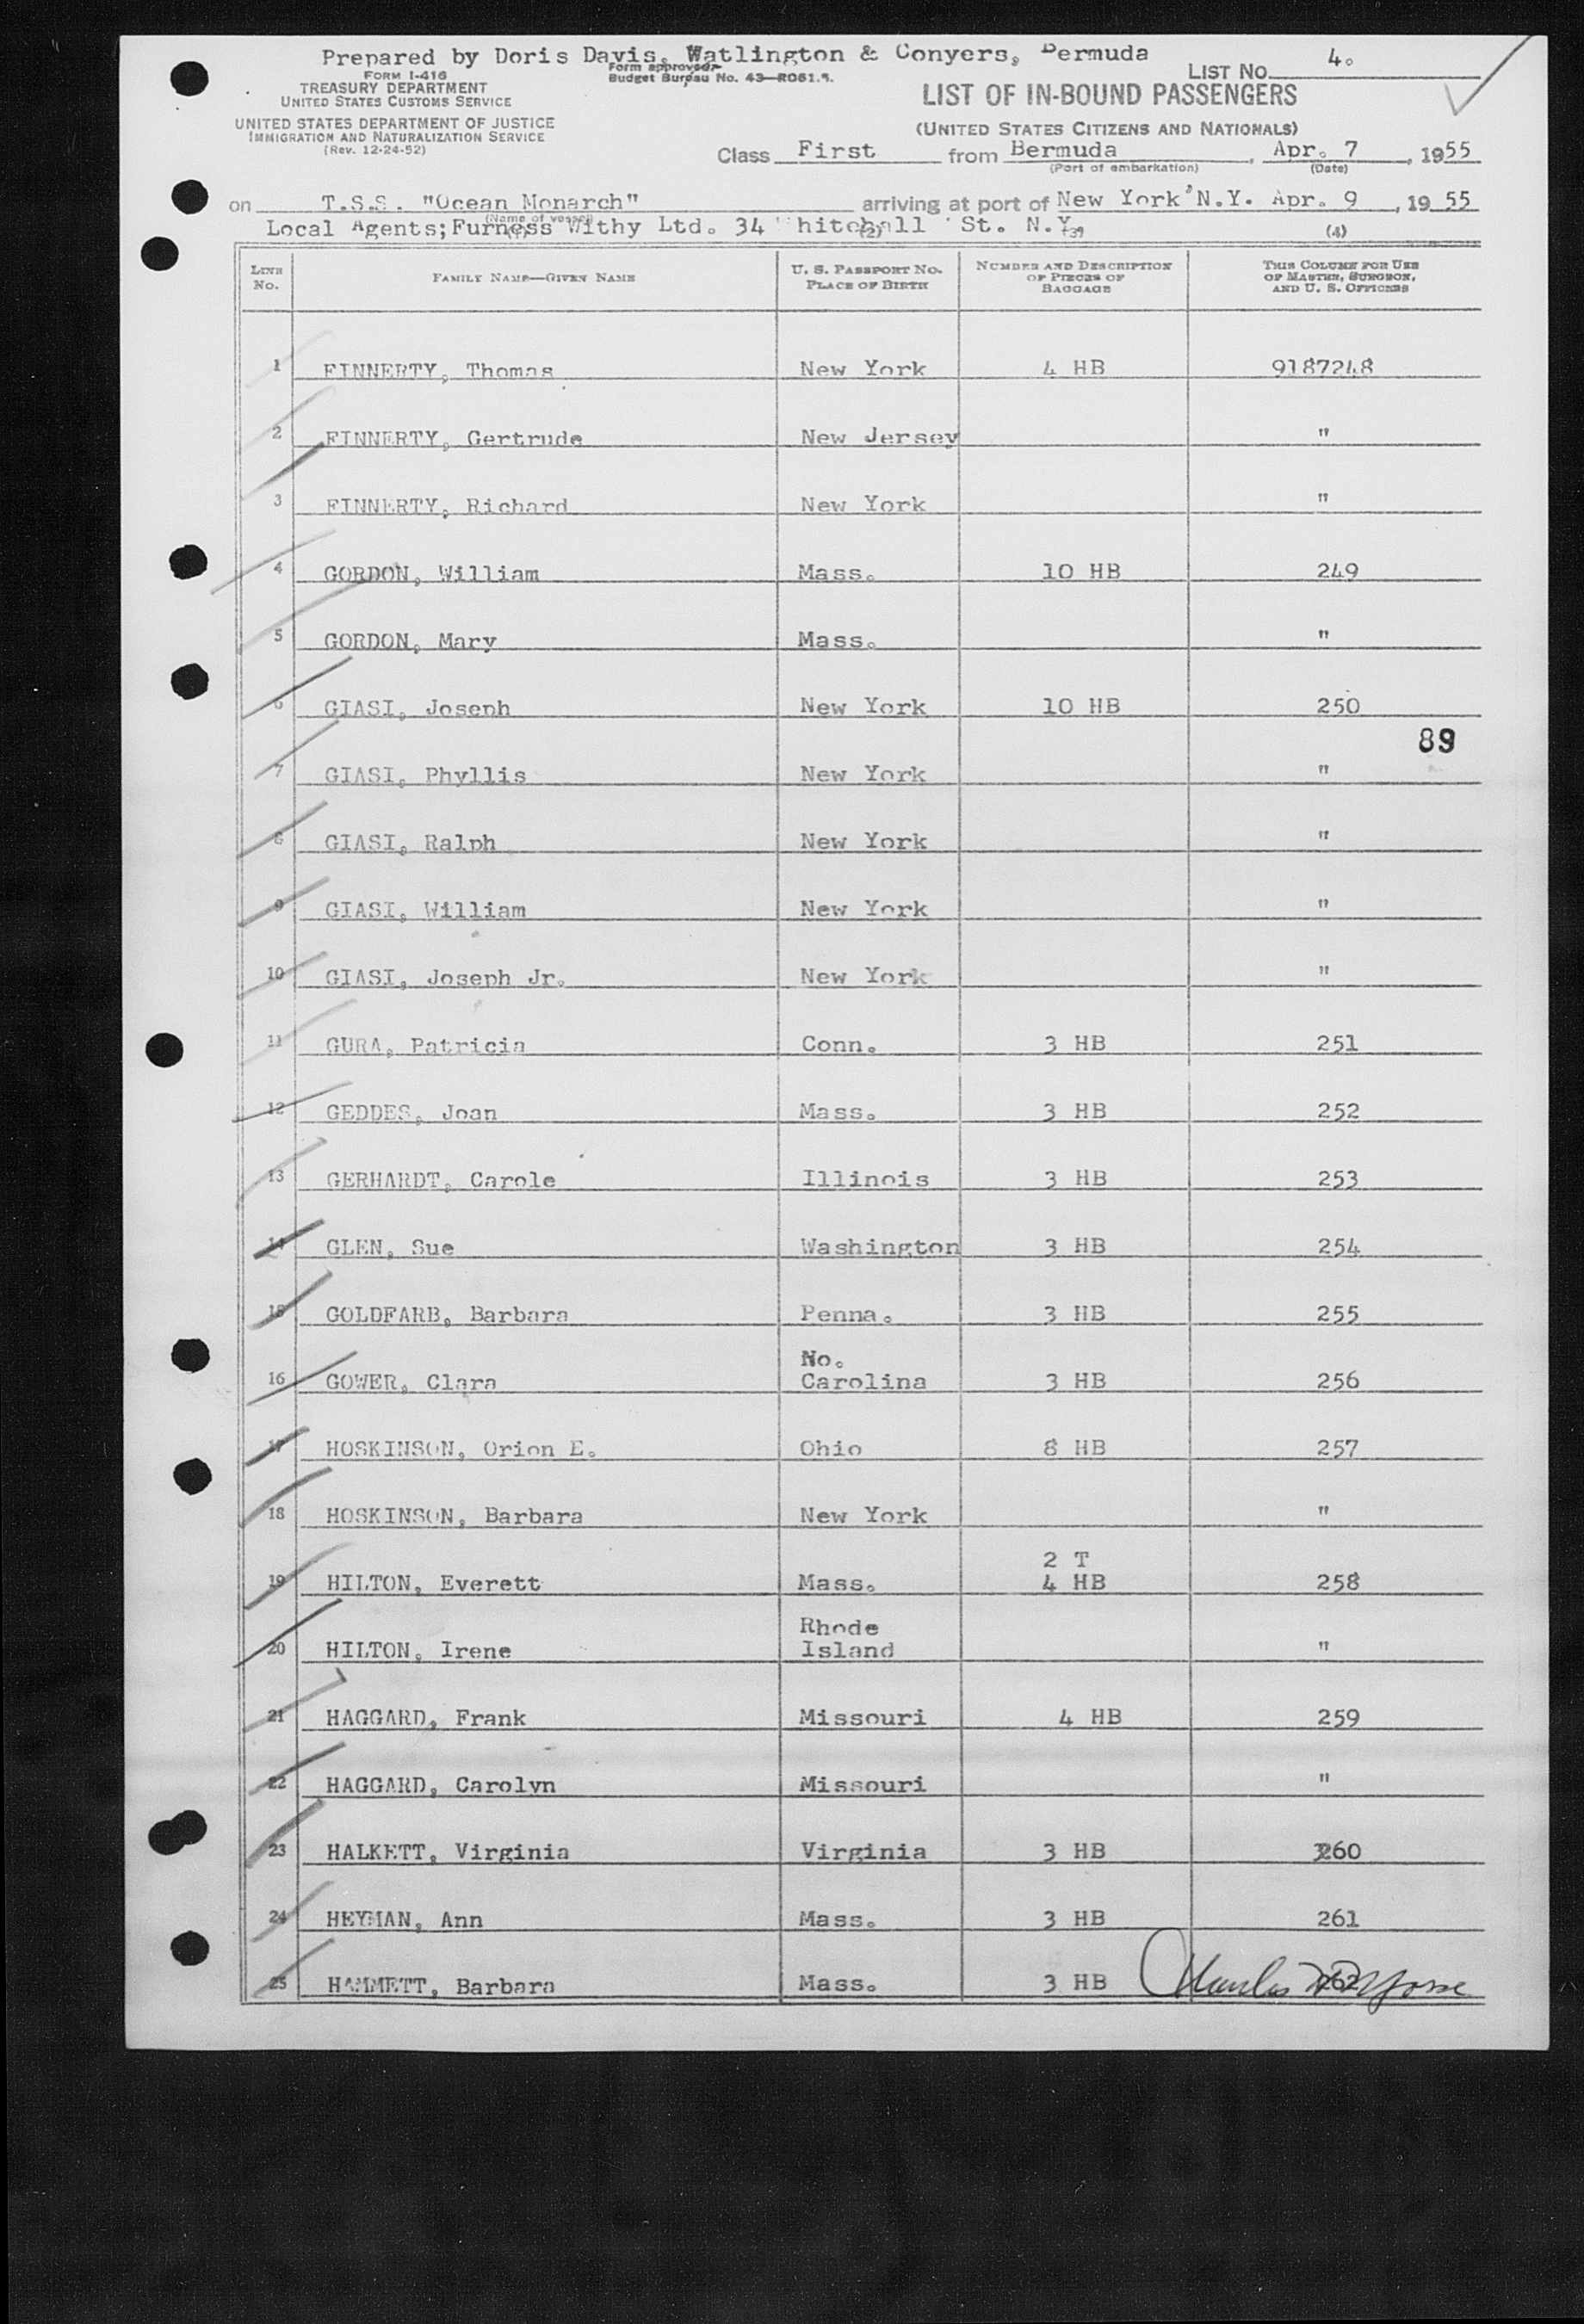 Prepared by Doris Davis, Watlington & Conyers, Bermuda
FORM I-416
TREASURY DEPARTMENT
UNITED STATES CUSTOMS SERVICE
UNITED STATES DEPARTMENT OF JUSTICE
IMMIGRATION AND NATURALIZATION SERVICE
(Rev. 12-24-52)
Form approved.
Budget Bureau No. 43—R061.
LIST No. 4.
LIST OF IN-BOUND PASSENGERS
(UNITED STATES CITIZENS AND NATIONALS)
Class First from Bermuda, Apr. 7, 1955
(Port of embarkation) (Date)
on T.S.S. "Ocean Monarch" arriving at port of New York N.Y. Apr. 9, 1955
(Name of vessel)
Local Agents; Furness Withy Ltd. 34 hitehall St. N.Y.
(1) (2) (3) (4)
LINE No. FAMILY NAME—GIVEN NAME U. S. PASSPORT NO. PLACE OF BIRTH NUMBER AND DESCRIPTION OF PIECES OF BAGGAGE THIS COLUMN FOR USE OF MASTER, SURGEON, AND U. S. OFFICERS
1 FINNERTY, Thomas New York 4 HB 9187248
2 FINNERTY, Gertrude New Jersey "
3 FINNERTY, Richard New York "
4 GORDON, William Mass. 10 HB 249
5 GORDON, Mary Mass. "
6 GIASI, Joseph New York 10 HB 250
89
7 GIASI, Phyllis New York "
8 GIASI, Ralph New York "
9 GIASI, William New York "
10 GIASI, Joseph Jr. New York "
11 GURA, Patricia Conn. 3 HB 251
12 GEDDES, Joan Mass. 3 HB 252
13 GERHARDT, Carole Illinois 3 HB 253
14 GLEN, Sue Washington 3 HB 254
15 GOLDFARB, Barbara Penna. 3 HB 255
16 GOWER, Clara No. Carolina 3 HB 256
17 HOSKINSON, Orion E. Ohio 8 HB 257
18 HOSKINSON, Barbara New York "
19 HILTON, Everett Mass. 2 T 4 HB 258
20 HILTON, Irene Rhode Island "
21 HAGGARD, Frank Missouri 4 HB 259
22 HAGGARD, Carolyn Missouri "
23 HALKETT, Virginia Virginia 3 HB 260
24 HEYMAN, Ann Mass. 3 HB 261
25 HAMMETT, Barbara Mass. 3 HB 262
Charles